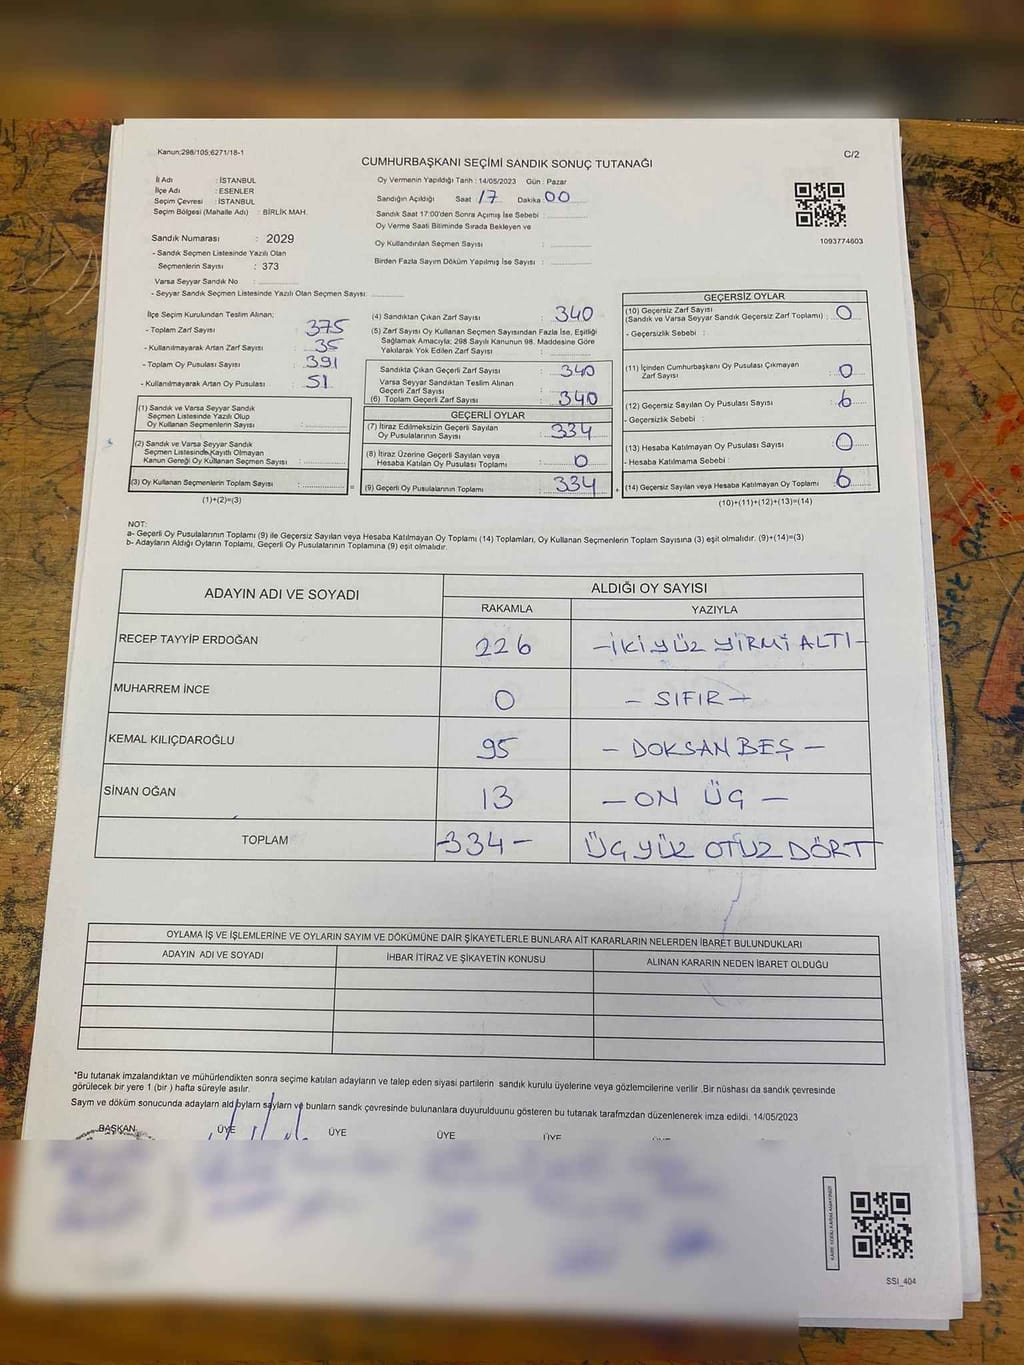 Kanun:298/105;6271/18-1
C/2
CUMHURBAŞKANI SEÇİMİ SANDIK SONUÇ TUTANAĞI
İl Adı : İSTANBUL
İlçe Adı : ESENLER
Seçim Çevresi : İSTANBUL
Seçim Bölgesi (Mahalle Adı) : BİRLİK MAH.
Sandık Numarası : 2029
- Sandık Seçmen Listesinde Yazılı Olan
Seçmenlerin Sayısı : 373
Varsa Seyyar Sandık No :
- Seyyar Sandık Seçmen Listesinde Yazılı Olan Seçmen Sayısı:
Oy Vermenin Yapıldığı Tarih : 14/05/2023 Gün : Pazar
Sandığın Açıldığı Saat : 17 Dakika 00
Sandık Saat 17:00'den Sonra Açımış İse Sebebi :
Oy Verme Saati Bitiminde Sırada Bekleyen ve
Oy Kullandırılan Seçmen Sayısı :
Birden Fazla Sayım Döküm Yapılmış İse Sayısı :
1093774603
İlçe Seçim Kurulundan Teslim Alınan:
- Toplam Zarf Sayısı : 375
- Kullanılmayarak Artan Zarf Sayısı : 35
- Toplam Oy Pusulası Sayısı : 391
- Kullanılmayarak Artan Oy Pusulası : 51
(1) Sandık ve Varsa Seyyar Sandık
Seçmen Listesinde Yazılı Olup
Oy Kullanan Seçmenlerin Sayısı :
(2) Sandık ve Varsa Seyyar Sandık
Seçmen Listesinde Kayıtlı Olmayan
Kanun Gereği Oy Kullanan Seçmen Sayısı :
(3) Oy Kullanan Seçmenlerin Toplam Sayısı :
(1)+(2)=(3)
(4) Sandıktan Çıkan Zarf Sayısı : 340
(5) Zarf Sayısı Oy Kullanan Seçmen Sayısından Fazla İse, Eşitliği
Sağlamak Amacıyla; 298 Sayılı Kanunun 98. Maddesine Göre
Yakılarak Yok Edilen Zarf Sayısı :
Sandıkta Çıkan Geçerli Zarf Sayısı : 340
Varsa Seyyar Sandıktan Teslim Alınan
Geçerli Zarf Sayısı :
(6) Toplam Geçerli Zarf Sayısı : 340
GEÇERLİ OYLAR
(7) İtiraz Edilmeksizin Geçerli Sayılan
Oy Pusulalarının Sayısı : 334
(8) İtiraz Üzerine Geçerli Sayılan veya
Hesaba Katılan Oy Pusulası Toplamı : 0
= (9) Geçerli Oy Pusulalarının Toplamı : 334
GEÇERSİZ OYLAR
(10) Geçersiz Zarf Sayısı
(Sandık ve Varsa Seyyar Sandık Geçersiz Zarf Toplamı) : 0
- Geçersizlik Sebebi :
(11) İçinden Cumhurbaşkanı Oy Pusulası Çıkmayan
Zarf Sayısı : 0
(12) Geçersiz Sayılan Oy Pusulası Sayısı : 6
- Geçersizlik Sebebi :
(13) Hesaba Katılmayan Oy Pusulası Sayısı : 0
- Hesaba Katılmama Sebebi :
+ (14) Geçersiz Sayılan veya Hesaba Katılmayan Oy Toplamı : 6
(10)+(11)+(12)+(13)=(14)
NOT:
a- Geçerli Oy Pusulalarının Toplamı (9) ile Geçersiz Sayılan veya Hesaba Katılmayan Oy Toplamı (14) Toplamları, Oy Kullanan Seçmenlerin Toplam Sayısına (3) eşit olmalıdır. (9)+(14)=(3)
b- Adayların Aldığı Oyların Toplamı, Geçerli Oy Pusulalarının Toplamına (9) eşit olmalıdır.
ADAYIN ADI VE SOYADI
ALDIĞI OY SAYISI
RAKAMLA YAZIYLA
RECEP TAYYİP ERDOĞAN 226 - İKİ YÜZ YİRMİ ALTI -
MUHARREM İNCE 0 - SIFIR -
KEMAL KILIÇDAROĞLU 95 - DOKSAN BEŞ -
SİNAN OĞAN 13 - ON ÜÇ -
TOPLAM -334- ÜÇ YÜZ OTUZ DÖRT
OYLAMA İŞ VE İŞLEMLERİNE VE OYLARIN SAYIM VE DÖKÜMÜNE DAİR ŞİKAYETLERLE BUNLARA AİT KARARLARIN NELERDEN İBARET BULUNDUKLARI
ADAYIN ADI VE SOYADI İHBAR İTİRAZ VE ŞİKAYETİN KONUSU ALINAN KARARIN NEDEN İBARET OLDUĞU
*Bu tutanak imzalandıktan ve mühürlendikten sonra seçime katılan adayların ve talep eden siyasi partilerin sandık kurulu üyelerine veya gözlemcilerine verilir .Bir nüshası da sandık çevresinde
görülecek bir yere 1 (bir ) hafta süreyle asılır.
Sayım ve döküm sonucunda adayların ald oyların sayların ve bunların sandk çevresinde bulunanlara duyurulduunu gösteren bu tutanak tarafmzdan düzenlenerek imza edildi. 14/05/2023
BAŞKAN ÜYE ÜYE ÜYE ÜYE
SSI_404